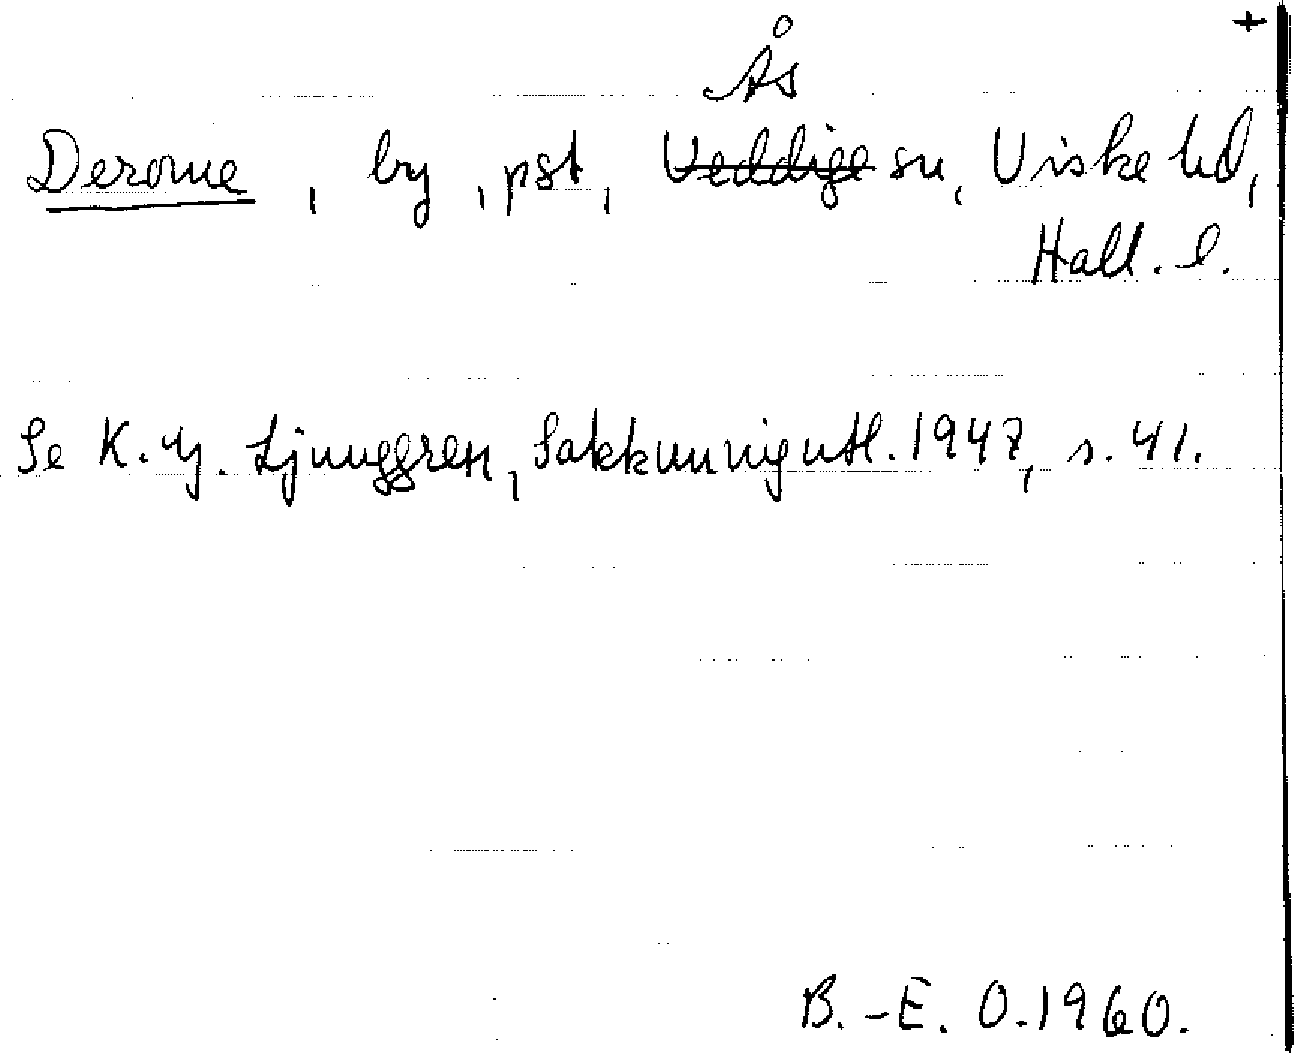 +
Ås
Derome, by, pst, Veddige sn, Viske hd,
Hall. l.
Se K. G. Ljunggren, Sakkunnigutl. 1947, s. 41.
B.-E. O. 1960.